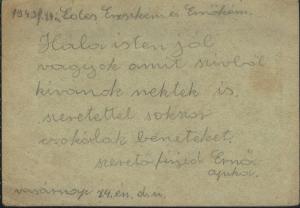 Édes Erzsikém és Ernőkém.
Hála isten jól
vagyok amit szivből
kivánok nektek is.
szeretettel sokszor
csokollak beneteket.
szerető férjed Ernő
apuka.
vasárnap 24.én. d.u.